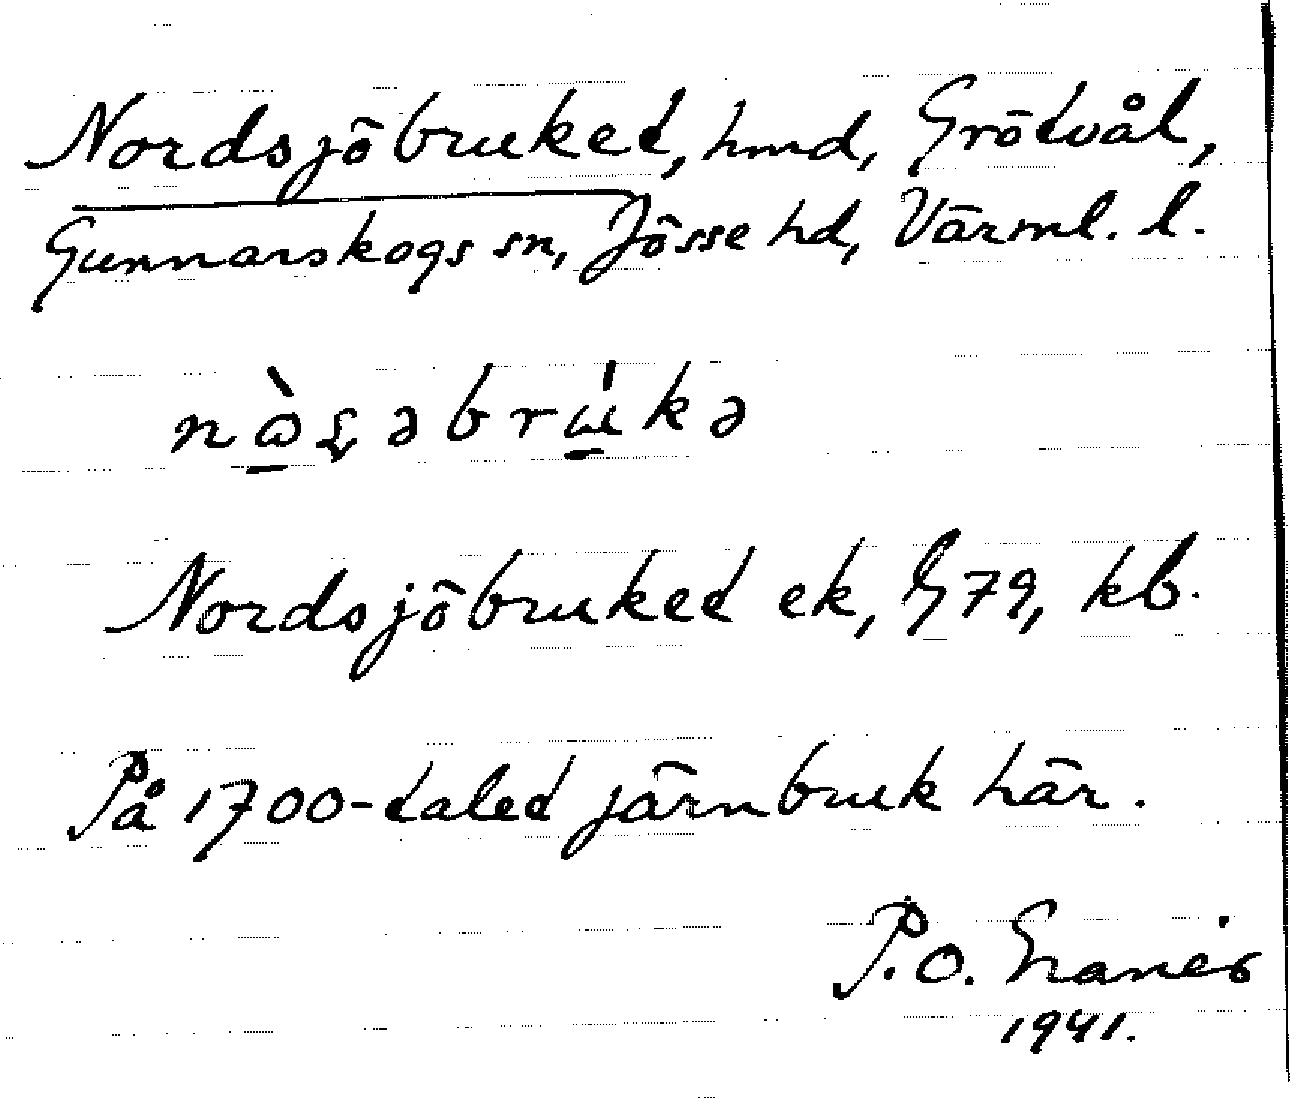 Nordsjöbruket, hmd, Grötvål,
Gunnarskogs sn, Jösse hd, Värml. l.
nὼʂəbrúkə
Nordsjöbruket ek, G79, kb.
På 1700-talet järnbruk här.
P.O. Granér
1941.